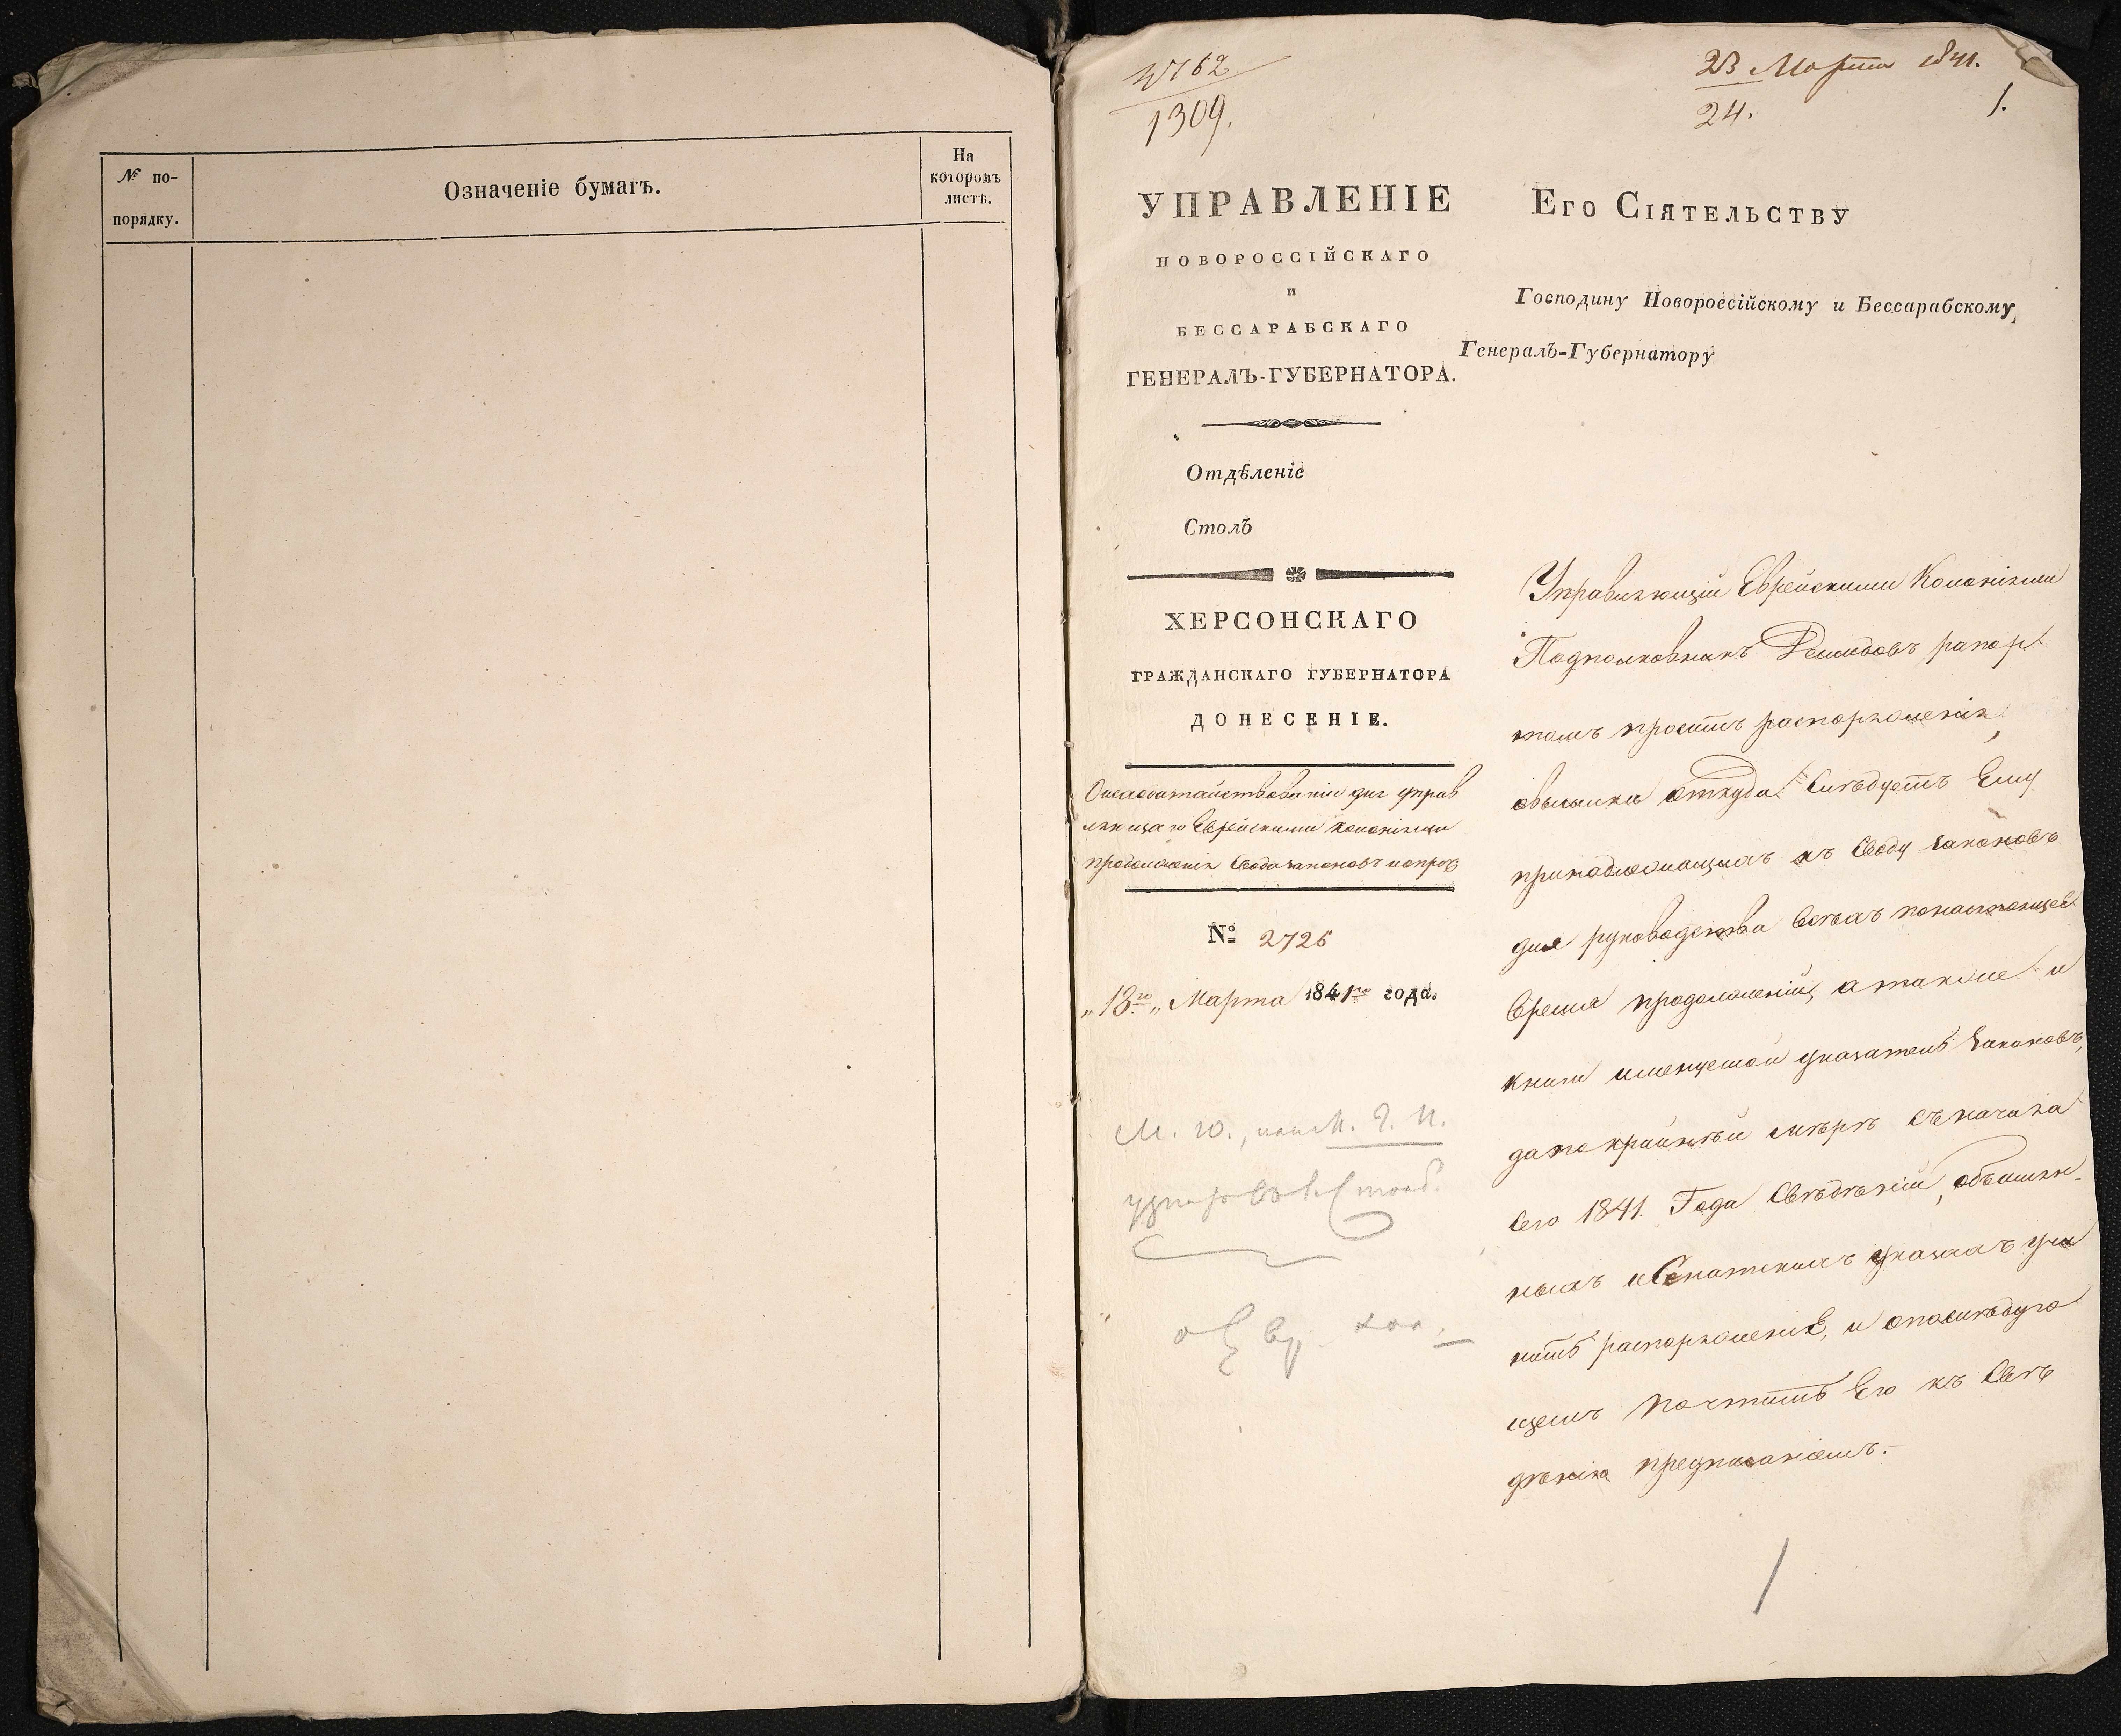 № по-
порядку.
Означеніе бумагъ.
На
которомъ
листѣ.
1309.
23 Марта 1841.
24.
1.
УПРАВЛЕНІЕ
НОВОРОССІЙСКАГО
И
БЕССАРАБСКАГО
ГЕНЕРАЛЪ-ГУБЕРНАТОРА.
Отдѣленіе
Столъ
ХЕРСОНСКАГО
ГРАЖДАНСКАГО ГУБЕРНАТОРА
ДОНЕСЕНІЕ.
для управ
ляющаго Еврейскими колоніями
продолженія Свода законовъ и проч
№ 2726
„13го„ Марта 1841го года.
Его Сіятельству
Господину Новороссійскому и Бессарабскому
Генералъ-Губернатору
Управляющій Еврейскими Колоніями
Подполковникъ Демидовъ рапор
томъ проситъ распоряженія
овысылкѣ откуда слѣдуетъ Ему
принадлежащихъ къ Своду законовъ
для руководства всѣхъ понастоящее
время продолженій, а также и
книги имянуемой указатель законовъ,
дапокрайнѣй мѣрѣ съначала
сего 1841. Года Свѣдѣній, объявлен-
ныхъ въСенатскихъ указахъ учи
нить распоряженіе, и опослѣдую
щемъ почтить Его къ Свѣ
дѣнію предписаніемъ.